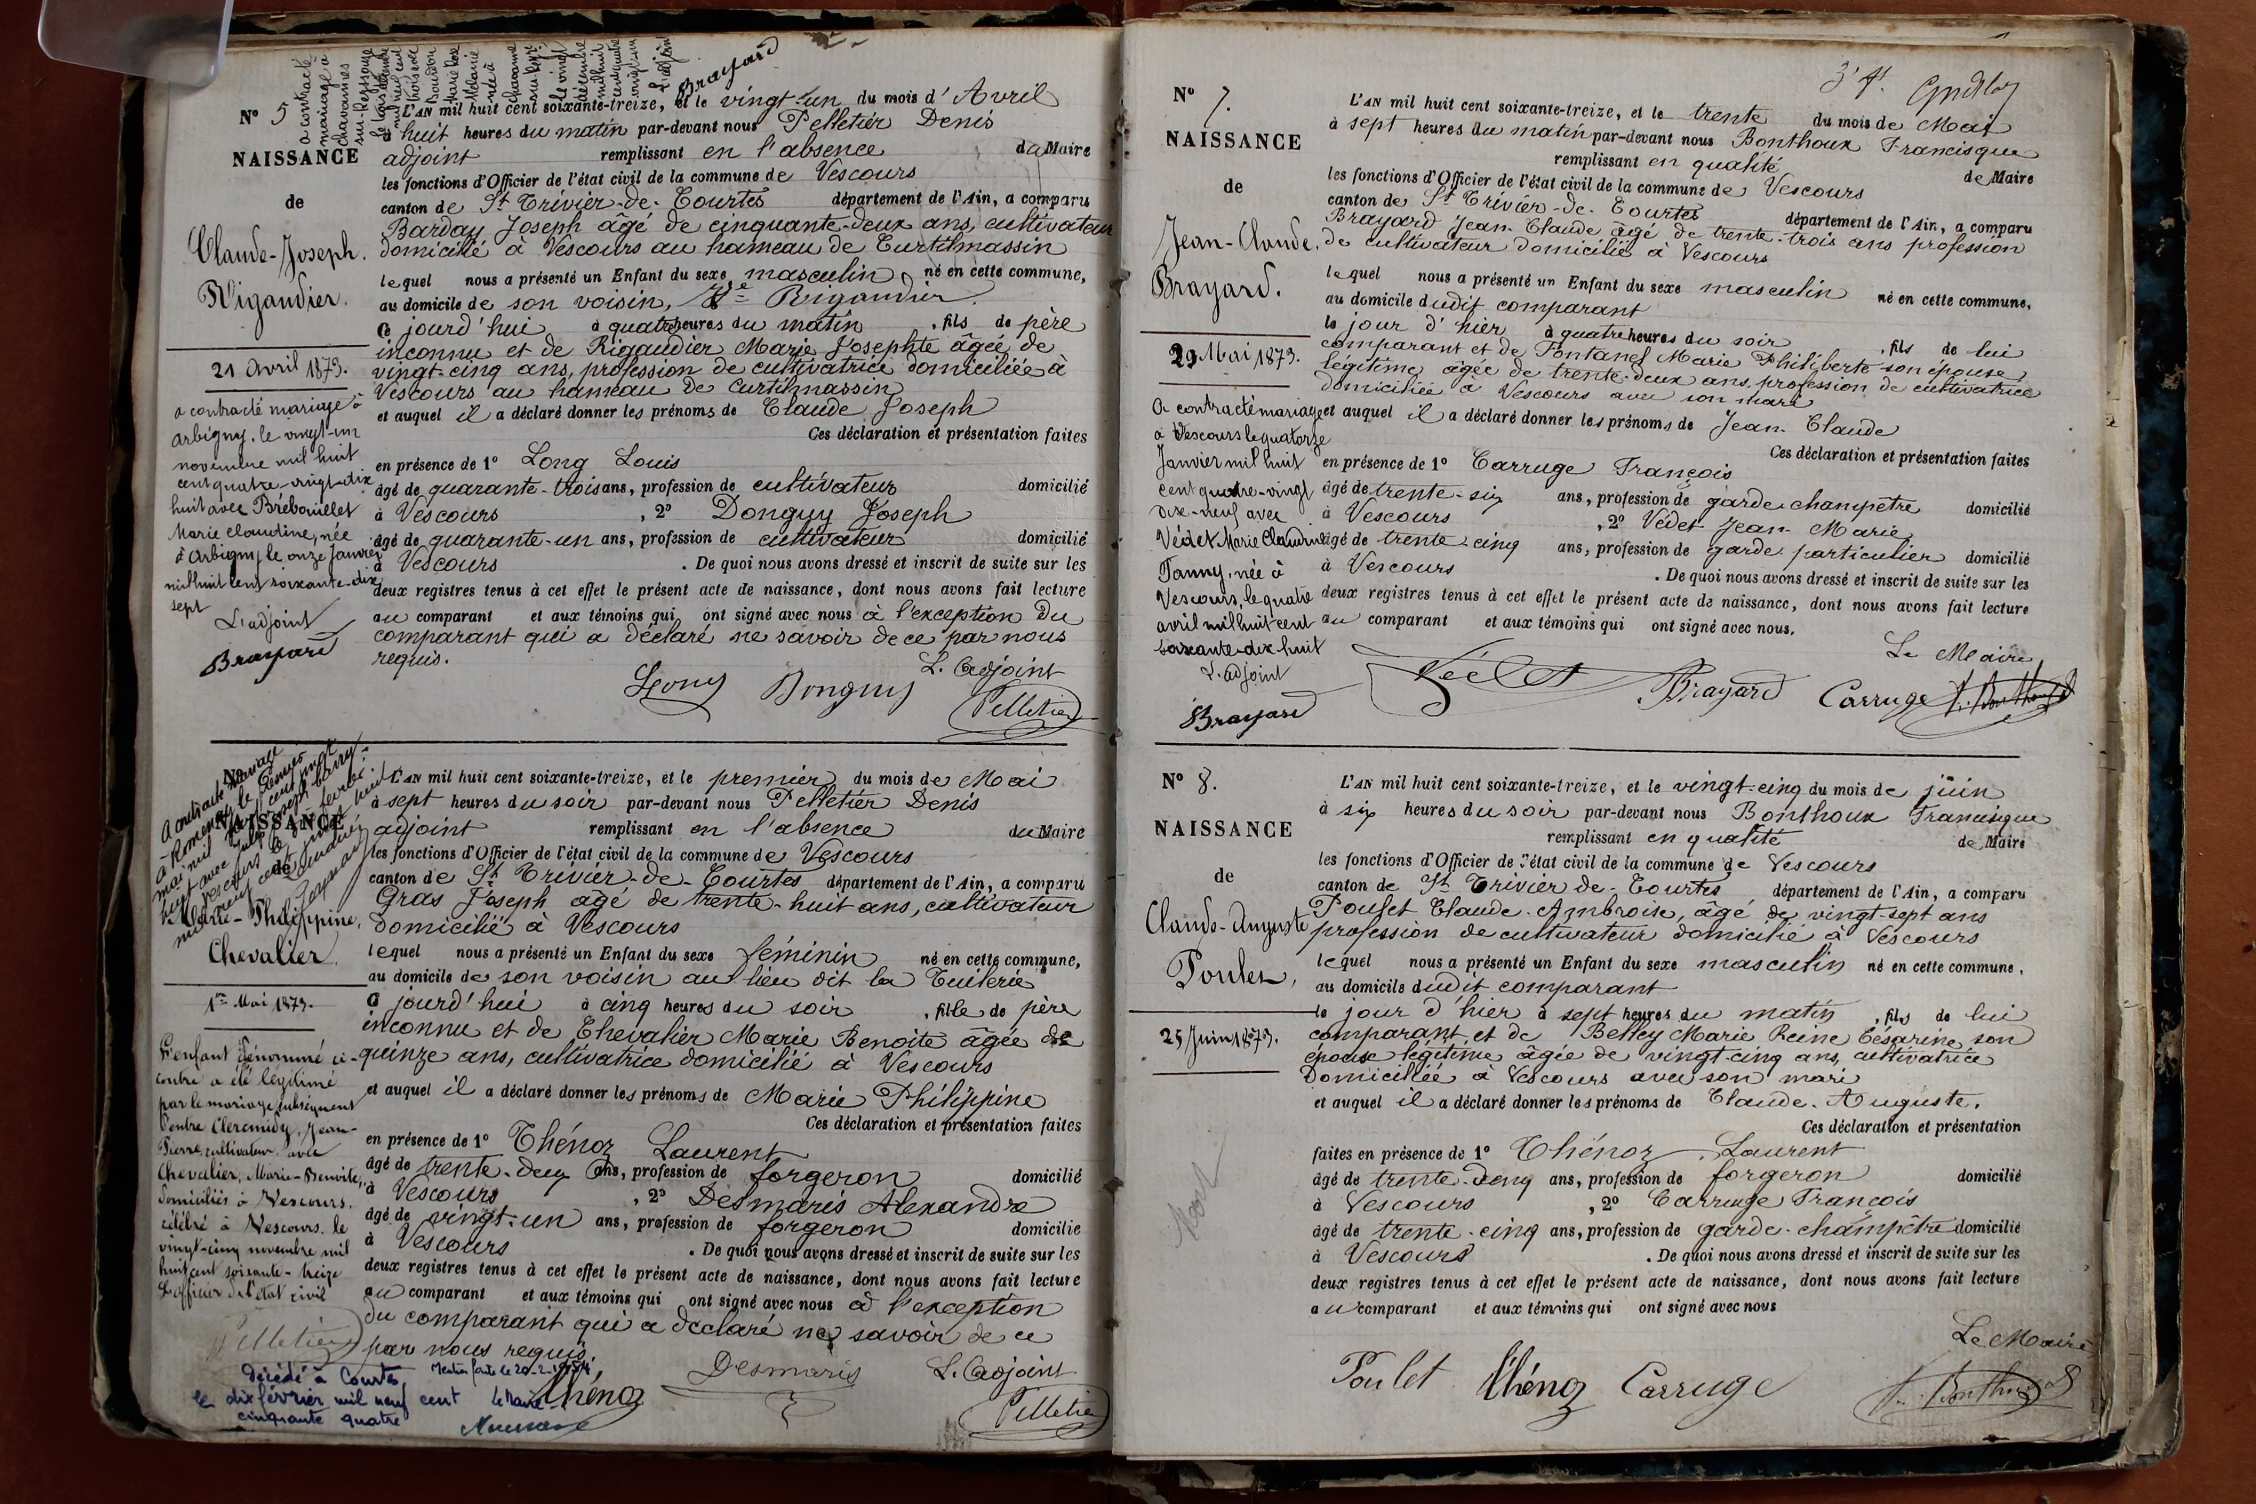 a contracté
mariage à
Chavannes
sur-Reyssouze
le trois décembre
mil neuf cent
trois avec
Bourdon
Marie Rose
Mélanie
née à
Chavannes
sur-Reyss:
le vingt
décembre
mil huit
cent quatre
vingt un
L'adjoint
Brayard
N° 5
NAISSANCE
de
Claude-Joseph.
Rigaudier.
21 Avril 1873.
a contracté mariage à
Arbigny, le vingt-un
novembre mil huit
cent quatre-vingt-dix
huit avec Brébouillet
Marie Claudine, née
à Arbigny le onze Janvier
mil huit cent soixante-dix
sept
L'adjoint
Brayard
L'AN mil huit cent soixante-treize, et le vingt-un du mois d'Avril
à huit heures du matin par-devant nous Pelletier Denis
adjoint remplissant en l'absence du Maire
les fonctions d'Officier de l'état civil de la commune de Vescours
canton de St Trivier-de-Courtes département de l'Ain, a comparu
Barday Joseph âgé de cinquante-deux ans, cultivateur
domicilié à Vescours au hameau de Curtilmassin
lequel nous a présenté un Enfant du sexe masculin né en cette commune,
au domicile de son voisin, Rigaudier.
Ce jourd'hui à quatre heures du matin, fils de père
inconnu et de Rigaudier Marie Josephte âgée de
vingt-cinq ans, profession de cultivatrice domiciliée à
Vescours au hameau de Curtilmassin
et auquel il a déclaré donner les prénoms de Claude Joseph
Ces déclaration et présentation faites
en présence de 1° Long Louis
âgé de quarante-trois ans, profession de cultivateur domicilié
à Vescours, 2° Donguy Joseph
âgé de quarante-un ans, profession de cultivateur domicilié
à Vescours. De quoi nous avons dressé et inscrit de suite sur les
deux registres tenus à cet effet le présent acte de naissance, dont nous avons fait lecture
au comparant et aux témoins qui ont signé avec nous à l'exception du
comparant qui a déclaré ne savoir de ce par nous
requis.
L. Adjoint
Long Donguy Pelletier
N°
NAISSANCE
de
Marie-Philippine.
Chevalier.
1er Mai 1873.
L'enfant dénommé ci-
contre a été légitimé
par le mariage subséquent
entre Clermidy, Jean-
Pierre, cultivateur avec
Chevalier, Marie-Benoite,
domiciliés à Vescours,
célébré à Vescours le
vingt-cinq novembre mil
huit cent soixante-treize
L'officier de l'état civil
Pelletier
L'AN mil huit cent soixante-treize, et le premier du mois de Mai
à sept heures du soir par-devant nous Pelletier Denis
adjoint remplissant en l'absence du Maire
les fonctions d'Officier de l'état civil de la commune de Vescours
canton de St Trivier-de-Courtes département de l'Ain, a comparu
Gras Joseph âgé de trente-huit ans, cultivateur
domicilié à Vescours
lequel nous a présenté un Enfant du sexe féminin né en cette commune,
au domicile de son voisin au lieu dit la Tuilerie
Ce jourd'hui à cinq heures du soir, fille de père
inconnu et de Chevalier Marie Benoite âgée de
quinze ans, cultivatrice domicilié à Vescours
et auquel il a déclaré donner les prénoms de Marie Philippine
Ces déclaration et présentation faites
en présence de 1° Thénoz Laurent
âgé de trente-deux ans, profession de forgeron domicilié
à Vescours, 2° Desmaris Alexandre
âgé de vingt-un ans, profession de forgeron domicilié
à Vescours. De quoi nous avons dressé et inscrit de suite sur les
deux registres tenus à cet effet le présent acte de naissance, dont nous avons fait lecture
au comparant et aux témoins qui ont signé avec nous à l'exception
du comparant qui a déclaré ne savoir de ce
par nous requis.
Desmaris L. Adjoint
Thénoz Pelletier
Décédé à Courtes
le dix février mil neuf cent
cinquante quatre
Mention faite le 20-2-1954
le Maire
N° 7.
NAISSANCE
de
Jean-Claude.
Brayard.
29 Mai 1873.
A contracté mariage
à Vescours le quatorze
Janvier mil huit
cent quatre-vingt
dix-neuf avec
Védet Marie Claudine
Fanny, née à
Vescours, le quatre
avril mil huit cent
soixante-dix huit
L'adjoint
Brayard
L'AN mil huit cent soixante-treize, et le trente du mois de Mai
à sept heures du matin par-devant nous Bonthoux Francisque
remplissant en qualité de Maire
les fonctions d'Officier de l'état civil de la commune de Vescours
canton de St Trivier-de-Courtes département de l'Ain, a comparu
Brayard Jean-Claude âgé de trente-trois ans profession
de cultivateur domicilié à Vescours
lequel nous a présenté un Enfant du sexe masculin né en cette commune,
au domicile dudit comparant
le jour d'hier à quatre heures du soir, fils de lui
comparant et de Fontanel Marie Philiberte son épouse
légitime âgée de trente-deux ans, profession de cultivatrice
domiciliée à Vescours avec son mari
et auquel il a déclaré donner les prénoms de Jean-Claude
Ces déclaration et présentation faites
en présence de 1° Carruge François
âgé de trente-six ans, profession de garde champêtre domicilié
à Vescours, 2° Védet Jean-Marie
âgé de trente-cinq ans, profession de garde particulier domicilié
à Vescours. De quoi nous avons dressé et inscrit de suite sur les
deux registres tenus à cet effet le présent acte de naissance, dont nous avons fait lecture
au comparant et aux témoins qui ont signé avec nous.
Le Maire
Védet Brayard Carruge F. Bonthoux
N° 8.
NAISSANCE
de
Claude-Auguste
Poulet,
25 Juin 1873.
L'AN mil huit cent soixante-treize, et le vingt-cinq du mois de juin
à six heures du soir par-devant nous Bonthoux Francisque
remplissant en qualité de Maire
les fonctions d'Officier de l'état civil de la commune de Vescours
canton de St Trivier-de-Courtes département de l'Ain, a comparu
Poulet Claude-Ambroise, âgé de vingt-sept ans
profession de cultivateur domicilié à Vescours
lequel nous a présenté un Enfant du sexe masculin né en cette commune,
au domicile dudit comparant
le jour d'hier à sept heures du matin, fils de lui
comparant et de Belley Marie Reine Césarine son
épouse légitime âgée de vingt-cinq ans, cultivatrice
domiciliée à Vescours avec son mari
et auquel il a déclaré donner les prénoms de Claude-Auguste.
Ces déclaration et présentation
faites en présence de 1° Thénoz Laurent
âgé de trente-deux ans, profession de forgeron domicilié
à Vescours, 2° Carruge François
âgé de trente-cinq ans, profession de garde-champêtre domicilié
à Vescours. De quoi nous avons dressé et inscrit de suite sur les
deux registres tenus à cet effet le présent acte de naissance, dont nous avons fait lecture
au comparant et aux témoins qui ont signé avec nous
Le Maire
Poulet Thénoz Carruge F. Bonthoux